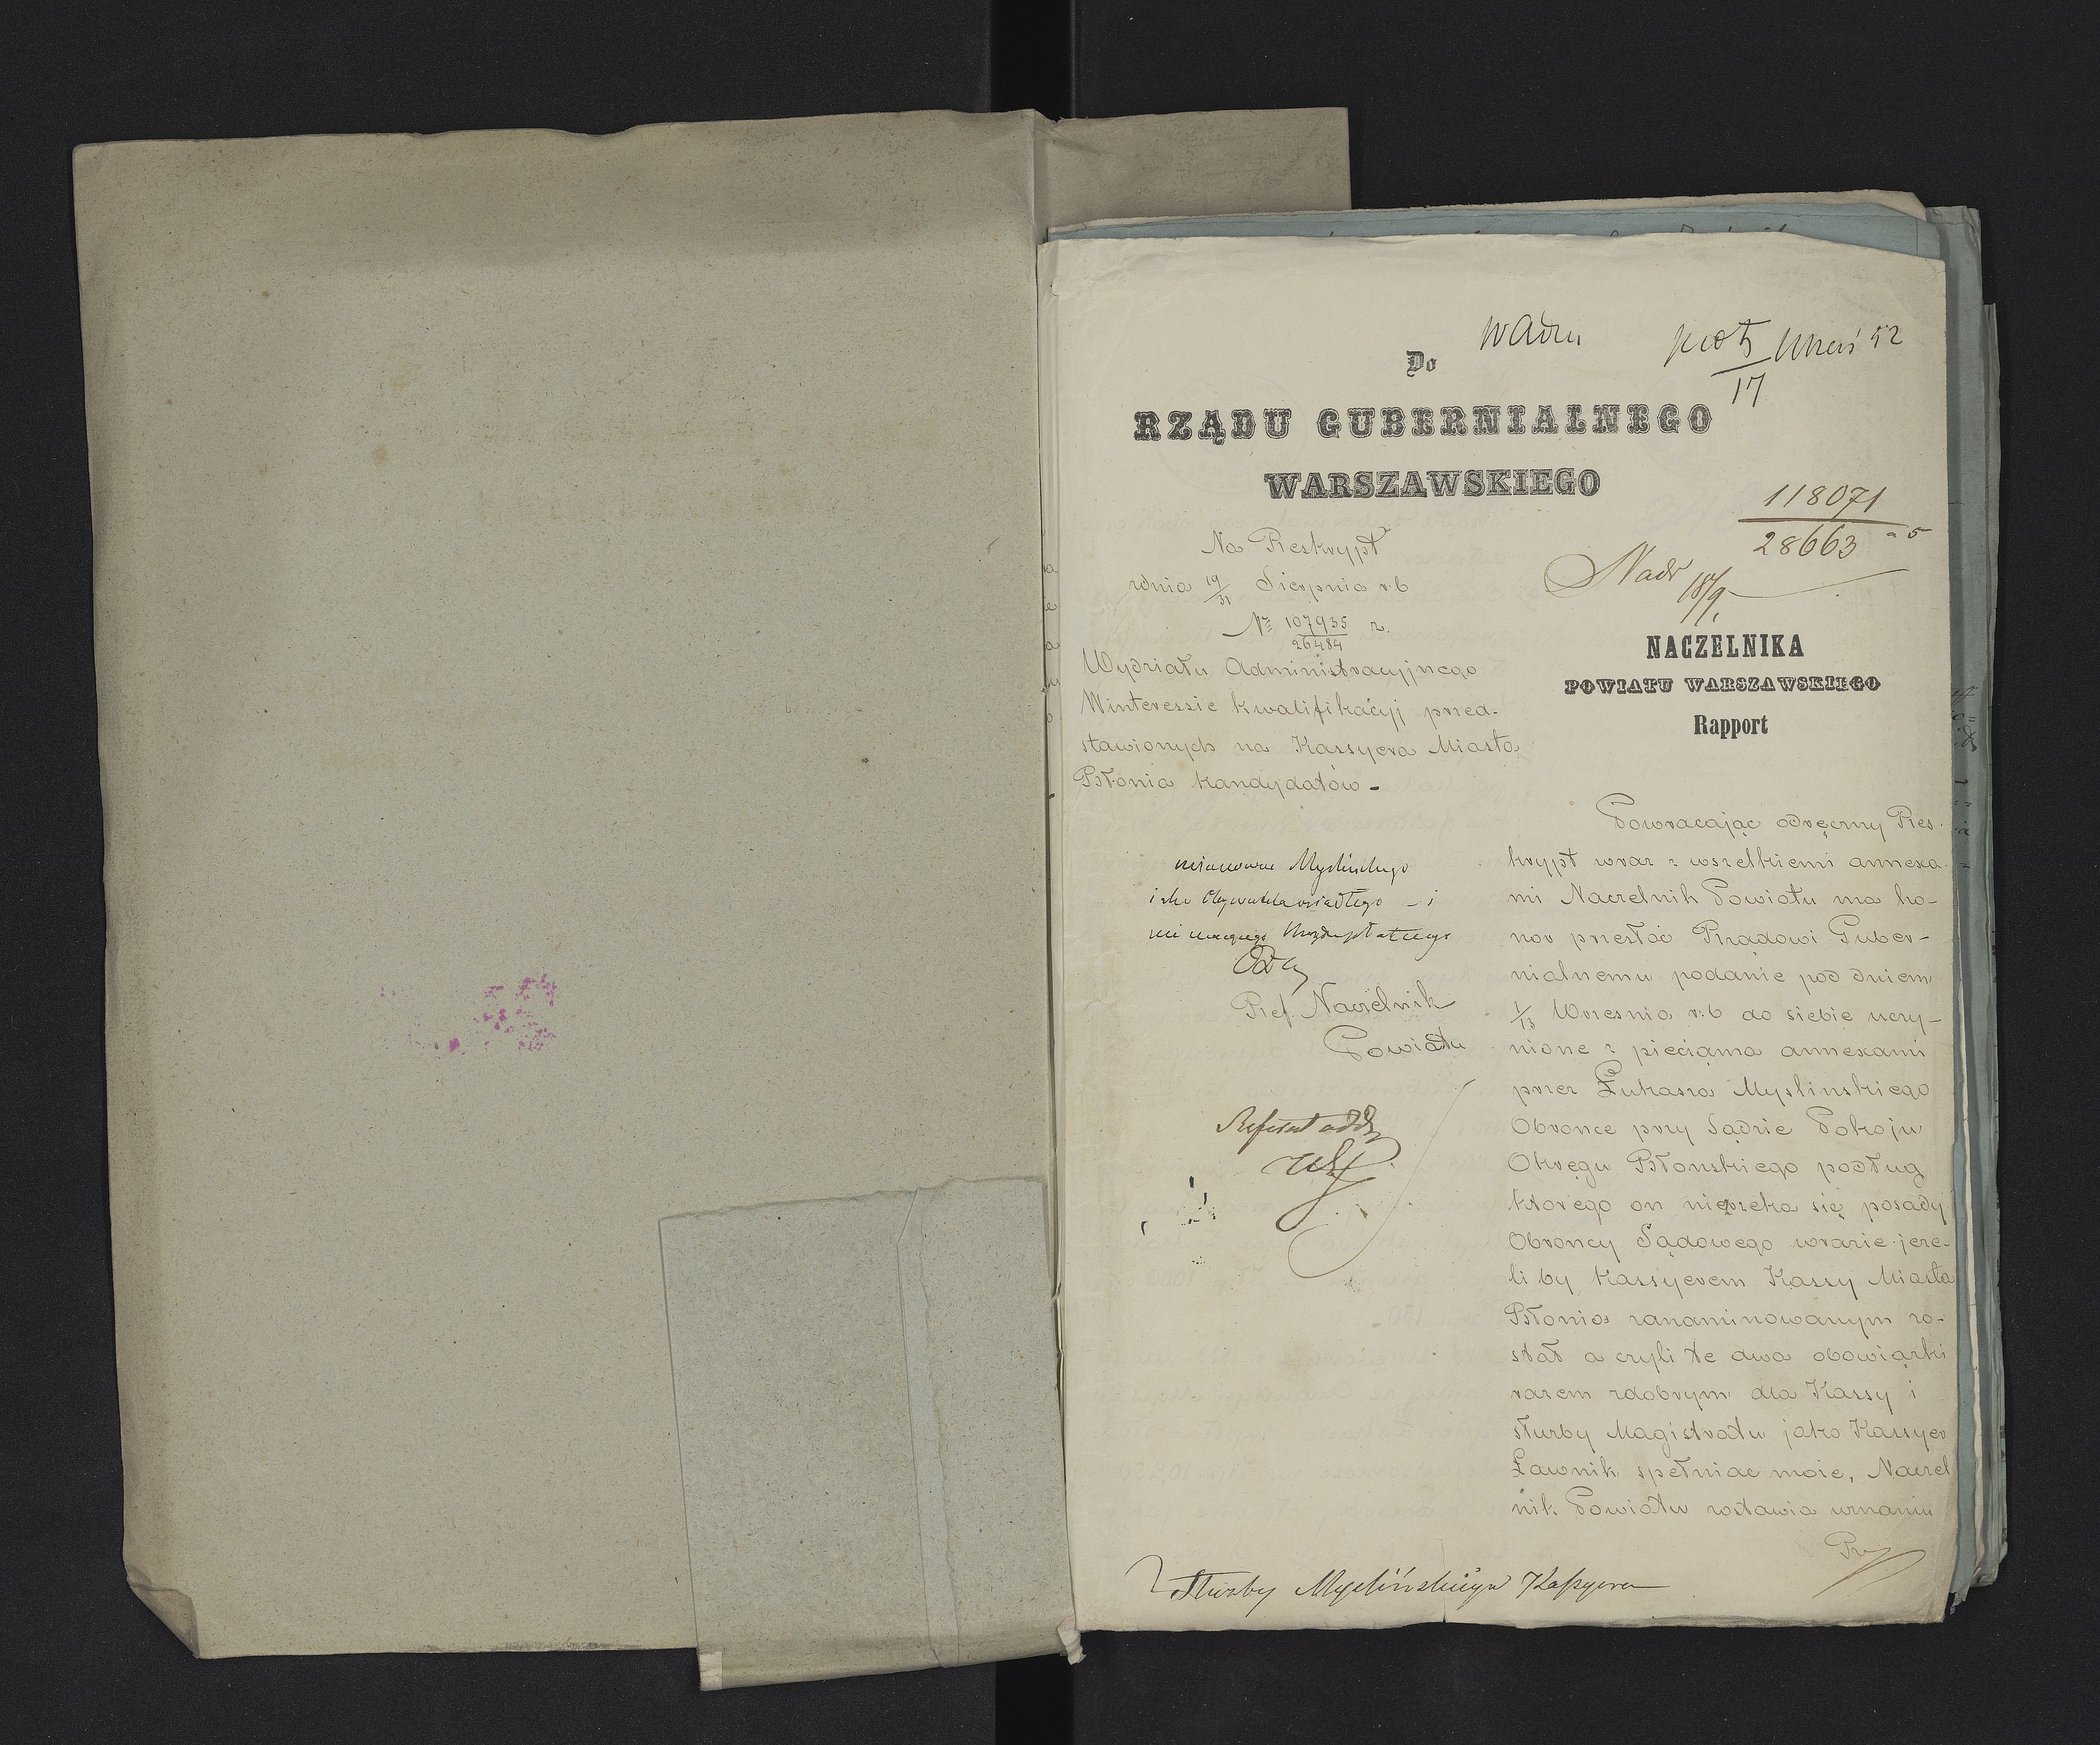 Do
RZĄDU GUBERNIALNEGO
WARSZAWSKIEGO
17
118071
28663
Na Reskrypt
zdnia 19/31 Sierpnia r.b
№ 107935/26484 r.
Wydziału Administracyjnego
Winteressie kwalifikacyj przed-
stawionych na Kassyera Miasta
Błonia kandydatów -
Nadr 18/9
NACZELNIKA
POWIATU WARSZAWSKIEGO
Rapport
Powracając odręczny Res-
krypt wraz z wszelkiemi annexa-
mi Naczelnik Powiatu ma ho-
nor przesłać Rządowi Guber-
nialnemu podanie pod dniem
1/13 Wrzesnia r:b do siebie uczy-
nione z pieciąma annexami
przez Łukasza Myslinskiego
Obronce przy Sądzie Pokoju
Okręgu Błonskiego podług
którego on niezrzeka się posady
Obroncy Sądowego wrazie jeze-
li by Kassyerem Kassy Miasta
Błonia zanaminowanym zo-
stał a czyli te dwa obowiązki
razem zdobrym dla Kassy i
słuzby Magistratu jako Kassyer
Ławnik spełniac moze, Naczel
nik Powiatu zostawia uznaniu
Rz
Myslinskiego
i
Ref. Naczelnik
Powiatu
Referat
Służby Myślińskiego Kassyera